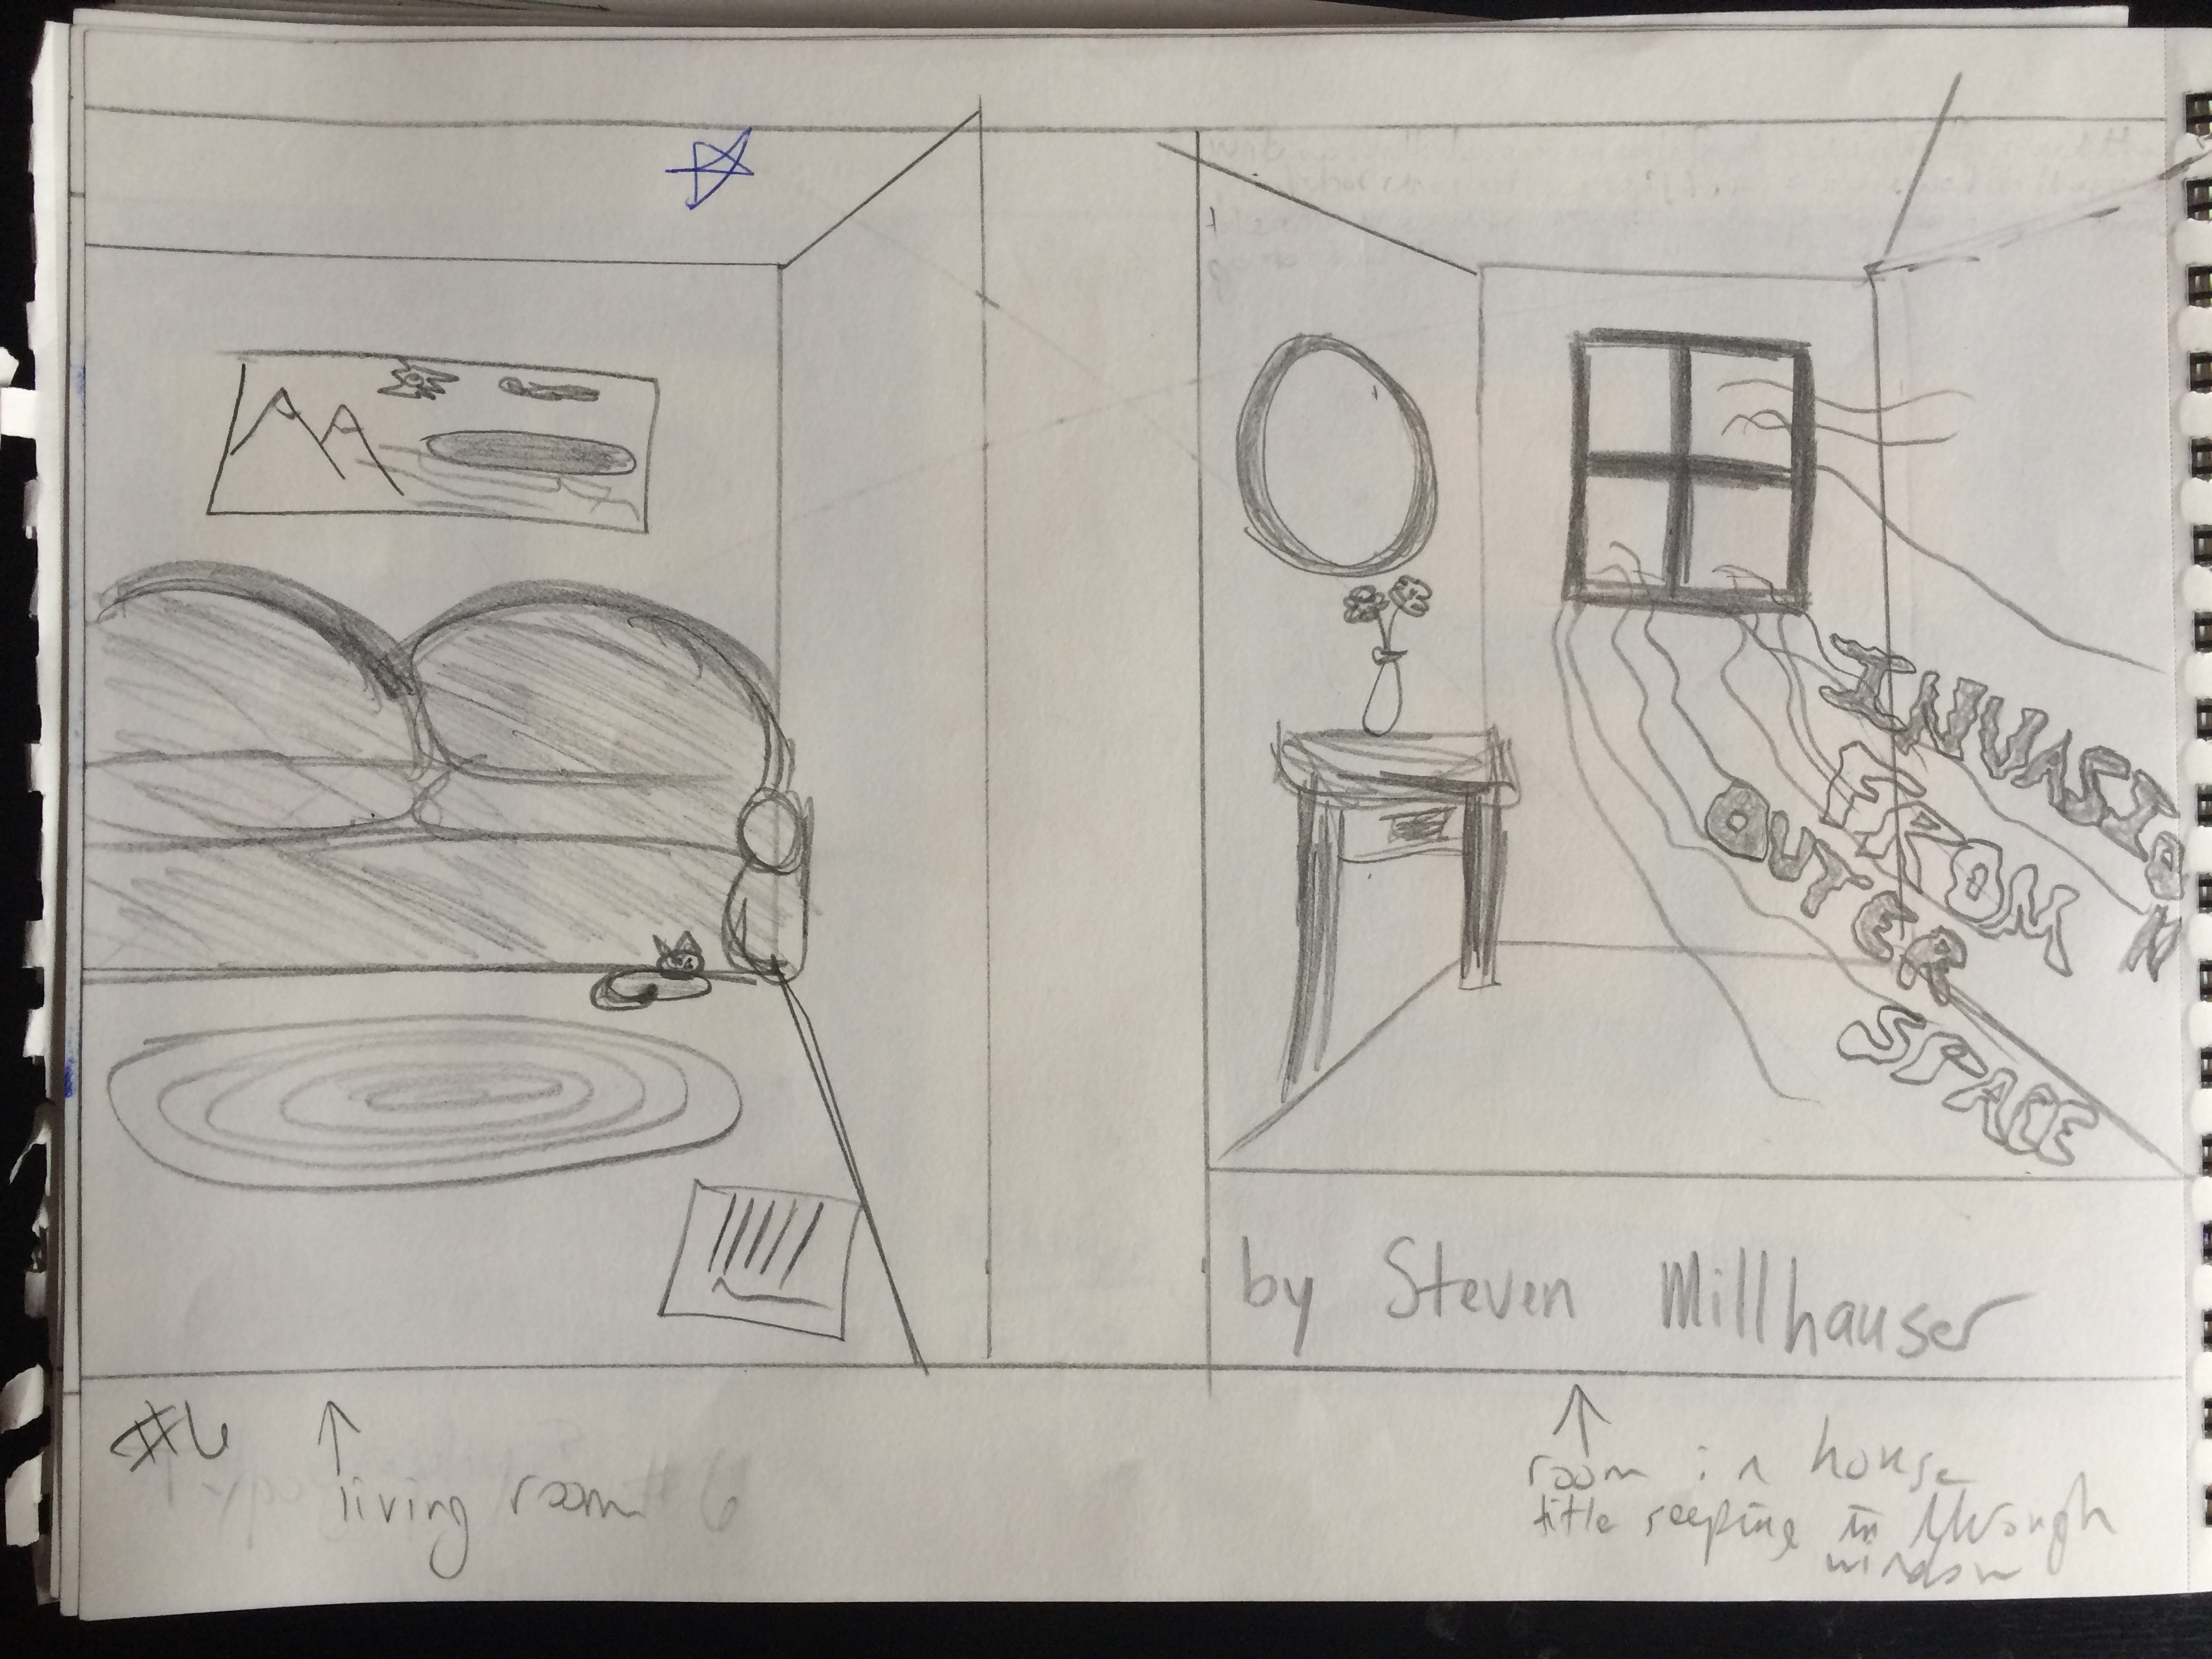 INVASION
FROM
OUTER
SPACE
by Steven Millhauser
#6
living room
room in house
title seeping in through
window